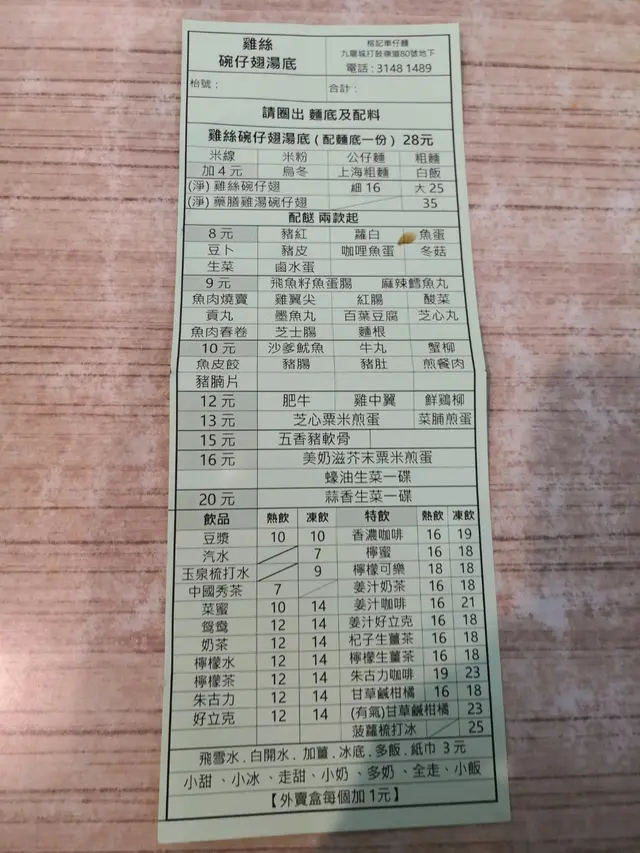 雞絲
碗仔翅湯底
榕記車仔麵
九龍城打鼓嶺道80號地下
電話：3148 1489
枱號： 合計：
請圈出 麵底及配料
雞絲碗仔翅湯底（配麵底一份） 28元
米線 米粉 公仔麵 粗麵
加4元 烏冬 上海粗麵 白飯
(淨) 雞絲碗仔翅 細 16 大 25
(淨) 藥膳雞湯碗仔翅 35
配餸 兩款起
8 元 豬紅 蘿白 魚蛋
豆卜 豬皮 咖哩魚蛋 冬菇
生菜 鹵水蛋
9 元 飛魚籽魚蛋腸 麻辣鱈魚丸
魚肉燒賣 雞翼尖 紅腸 酸菜
貢丸 墨魚丸 百葉豆腐 芝心丸
魚肉春卷 芝士腸 麵根
10 元 沙爹魷魚 牛丸 蟹柳
魚皮餃 豬腸 豬肚 煎餐肉
豬腩片
12 元 肥牛 雞中翼 鮮鷄柳
13 元 芝心粟米煎蛋 菜脯煎蛋
15 元 五香豬軟骨
16 元 美奶滋芥末粟米煎蛋
蠔油生菜一碟
20 元 蒜香生菜一碟
飲品 熱飲 凍飲 特飲 熱飲 凍飲
豆漿 10 10 香濃咖啡 16 19
汽水 7 檸蜜 16 18
玉泉梳打水 9 檸檬可樂 18 18
中國秀茶 7 姜汁奶茶 16 18
菜蜜 10 14 姜汁咖啡 16 21
鴛鴦 12 14 姜汁好立克 16 18
奶茶 12 14 杞子生薑茶 16 18
檸檬水 12 14 檸檬生薑茶 16 18
檸檬茶 12 14 朱古力咖啡 19 23
朱古力 12 14 甘草鹹柑橘 16 18
好立克 12 14 (有氣)甘草鹹柑橘 23
菠蘿梳打冰 25
飛雪水 . 白開水 . 加薑 . 冰底 . 多飯 . 紙巾 3 元
小甜 、小冰 、走甜 、小奶 、多奶 、全走 、小飯
【外賣盒每個加 1元】